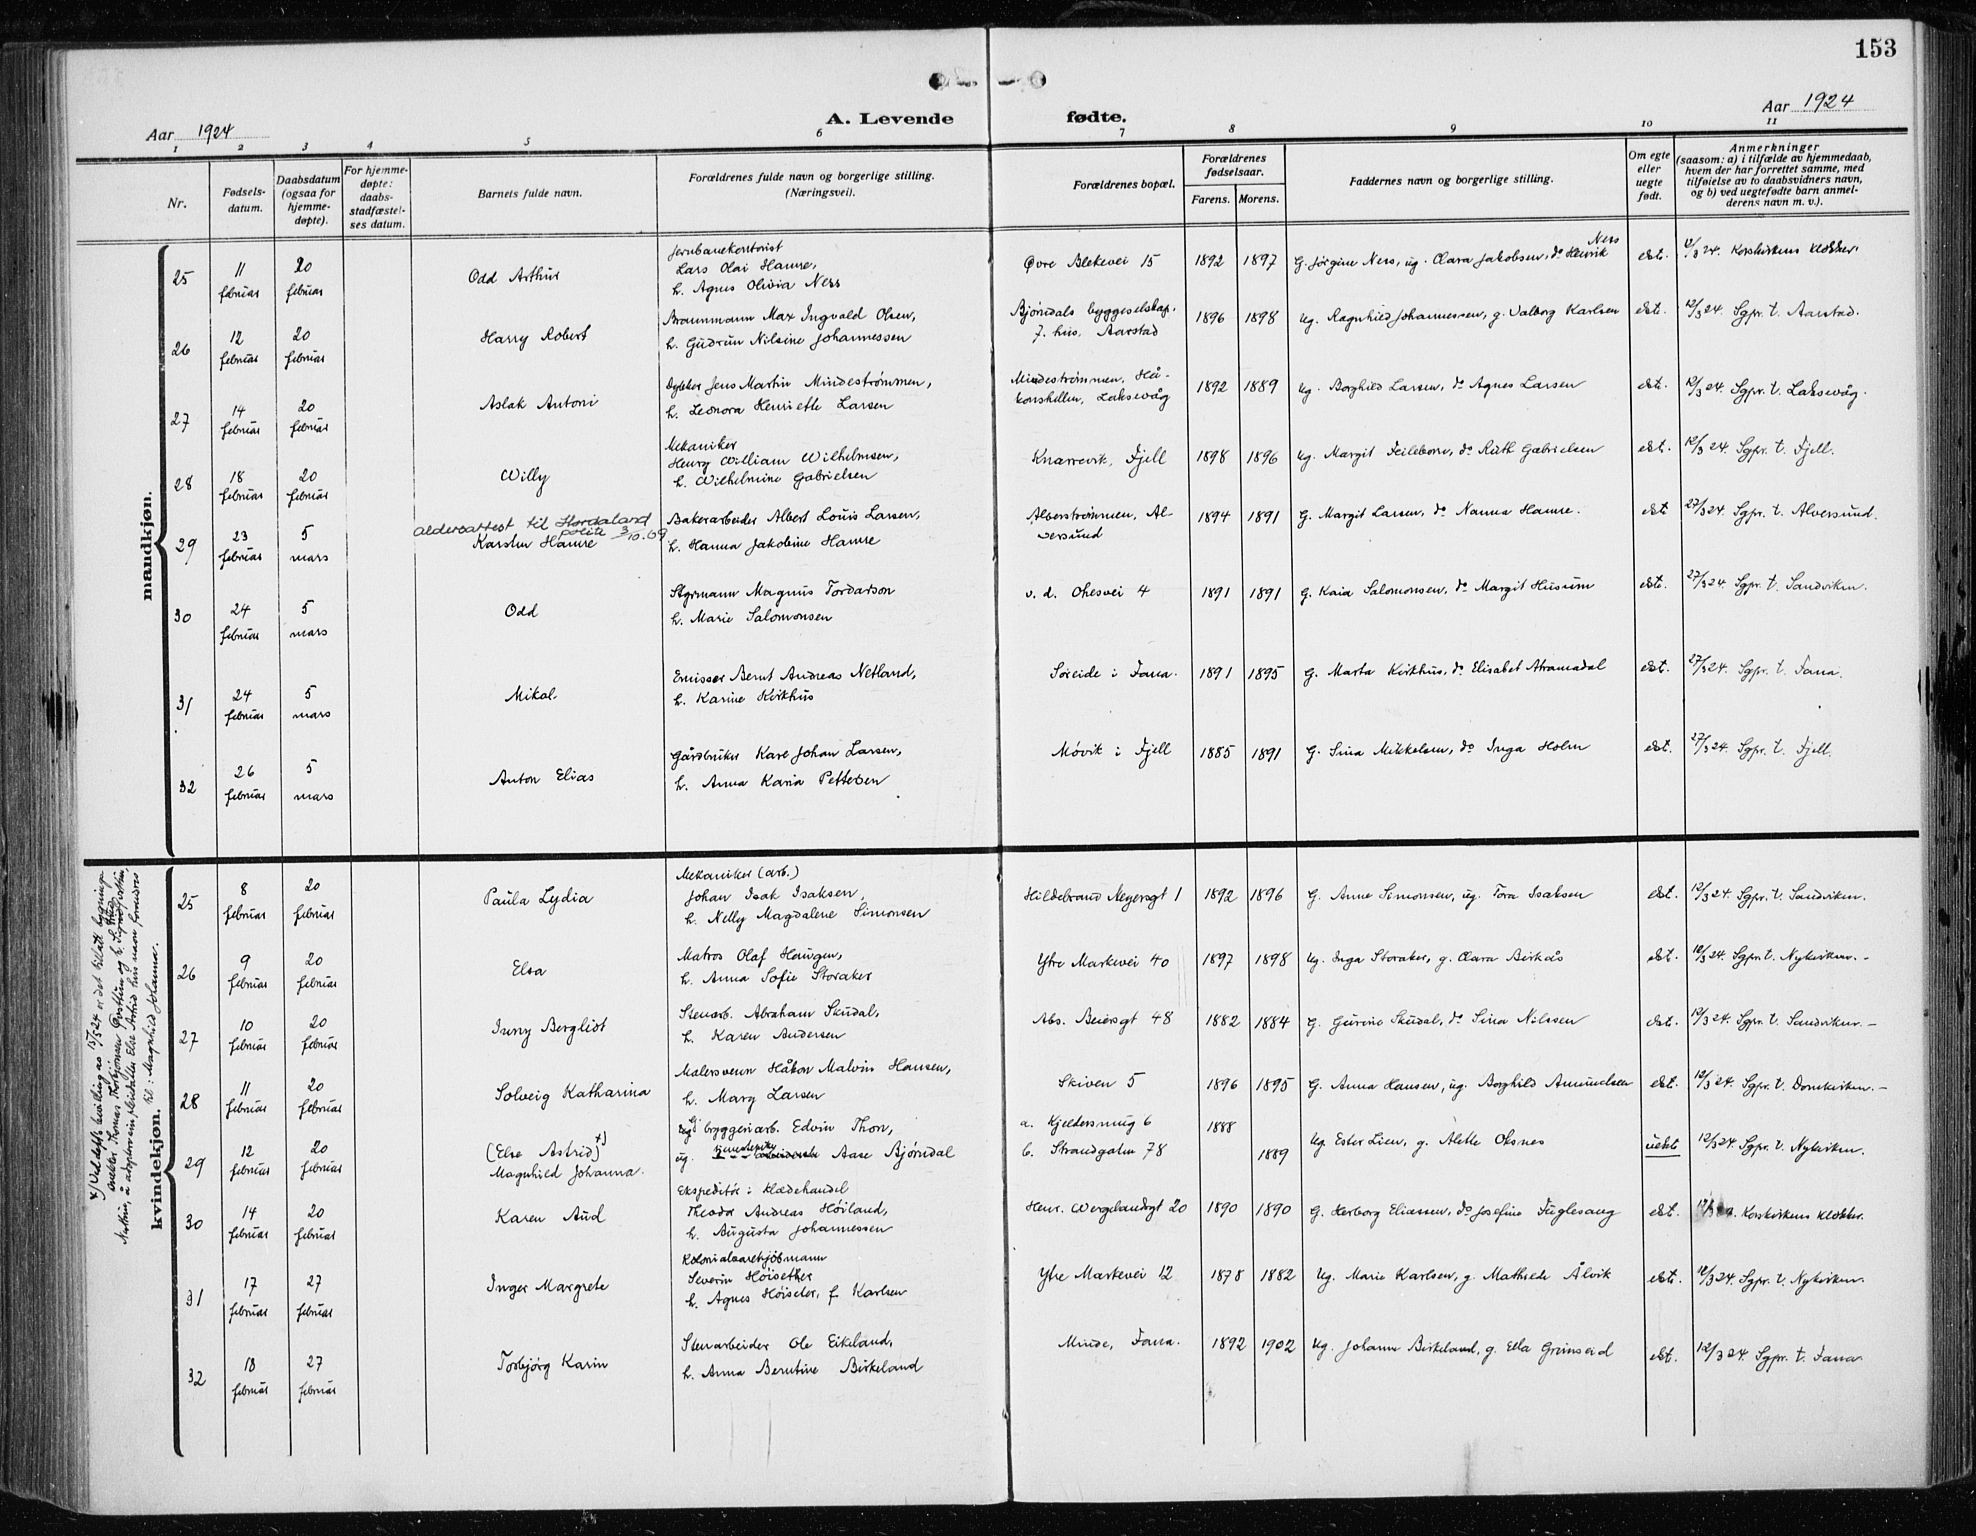 153
Aar 1924
A. Levende fødte.
Aar 1924
1 2 3 4 5 6 7 8 9 10 11
Nr.
Fødsels-
datum.
Daabsdatum
(ogsaa for
hjemme-
døpte).
For hjemme-
døpte:
daabs-
stadfæstel-
ses datum.
Barnets fulde navn.
Forældrenes fulde navn og borgerlige stilling.
(Næringsvei).
Forældrenes bopæl.
Forældrenes
fødselsaar.
Farens. Morens.
Faddernes navn og borgerlige stilling.
Om egte
eller
uegte
født.
Anmerkninger
(saasom: a) i tilfælde av hjemmedaab,
hvem der har forrettet samme, med
tilføielse av to daabsvidners navn,
og b) ved uegtefødte barn anmel-
derens navn m. v.).
mandkjøn.
25 11 februar 20 februar Odd Arthur
Jernbanekontorist
Lars Olai Hamre,
h. Agnes Olivia Ness
Øvre Blekevei 15 1892 1897 G. Jørgine Ness, ug. Clara Jakobsen, do Henrik Ness ekt. 12/3 24. Korskirkens klokker.
26 12 februar 20 februar Harry Robert
Brannmann Max Ingvald Olsen,
h. Gudrun Nilsine Johannessen
Bjørndals byggeselskap,
7. hus, Aarstad
1896 1898 Ug. Ragnhild Johannessen, g. Valborg Karlsen ekt. 12/3 24. Sgpr. t. Aarstad.
27 14 februar 20 februar Aslak Antoni
Dykker Jens Martin Mindestrømmen,
h. Leonora Henriette Larsen
Mindestrømmen, Hå-
konshellen, Laksevåg
1892 1889 Ug. Borghild Larsen, do Agnes Larsen ekt. 12/3 24. Sgpr. t. Laksevåg.
28 18 februar 20 februar Willy
Mekaniker
Henry William Wilhelmsen,
h. Wilhelmine Gabrielsen
Knarrevik, Fjell 1898 1896 Ug. Margit Feileborn, do Ruth Gabrielsen ekt. 12/3 24. Sgpr. t. Fjell.
29 23 februar 5 mars
aldersattest til Hordaland
politi 3/10.69
Karsten Hamre
Bakerarbeider Albert Louis Larsen,
h. Hanna Jakobine Hamre
Alverstrømmen, Al-
versund
1894 1891 G. Margit Larsen, do Nanna Hamre. ekt 27/3 24. Sgpr. t. Alversund.
30 24 februar 5 mars Odd
Styrmann Magnus Tordarson
h. Marie Salomonsen
v. d. Ohesvei 4 1891 1891 G. Kaia Salomonsen, do Margit Husum ekt. 27/3 24. Sgpr. t. Sandviken.
31 24 februar 5 mars Mikal
Emissær Bernt Andreas Netland,
h. Karine Kirkhus
Søreide i Fana. 1891 1895 G. Marta Kirkhus, do Elisabet Atramadal ekt. 27/3 24. Sgpr. t. Fana.
32 26 februar 5 mars Anton Elias
Gårdbruker Kare Johan Larsen,
h. Anna Karia Pettersen
Møvik i Fjell 1885 1891 G. Sina Mikkelsen, do Inga Holm ekt. 27/3 24. Sgpr. t. Fjell.
kvindekjøn.
25 8 februar 20 februar Paula Lydia
Mekaniker (arb.)
Johan Isak Isaksen,
h. Nelly Magdalene Simonsen
Hildebrand Meyersgt 1 1892 1896 G. Anne Simonsen, ug. Tora Isaksen ekt. 12/3 24. Sgpr. t. Sandviken.
26 9 februar 20 februar Elsa
Matros Olaf Haugen,
h. Anna Sofie Storaker
Ytre Markevei 40 1897 1898 Ug. Inga Storaker, g. Clara Birkås ekt. 12/3 24. Sgpr. t. Nykirken.-
27 10 februar 20 februar Inny Bergliot
Stenarb. Abraham Skudal,
h. Karen Andersen
Abs. Beiersgt 48 1882 1884 G. Gurine Skudal, do Sina Nilssen ekt. 12/3 24. Sgpr. t. Sandviken.-
28 11 februar 20 februar Solveig Katharina
Malersvenn Håkon Malvin Hansen,
h. Mary Larsen
Skiven 5 1896 1895 G. Anna Hansen, ug. Borghild Amundsen ekt. 12/3 24. Sgpr. t. Domkirken.-
29 12 februar 20 februar
(Else Astrid) x)
Magnhild Johanna.
bryggeriarb. Edvin Thon,
ug. Aase Bjørndal
a. Kjeldersmug 6 1888
b. Strandgaten 78 1889
Ug. Ester Lien, g. Alette Ohsnes uekt 12/3 24. Sgpr. t. Nykirken.
30 14 februar 20 februar Karen Aud
Ekspeditør i klædehandel
Theodor Andreas Høiland,
h. Augusta Johannessen
Henr. Wergelandsgt 20 1890 1890 G. Herborg Eliassen, do Josefine Fuglesang ekt. 12/3 24. Korskirkens klokker.
31 17 februar 27 februar Inger Margrete
Kolonialvarekjøbmann
Severin Høisether
h. Agnes Høiseter, f. Karlsen
Ytre Markevei 12 1878 1882 Ug. Marie Karlsen, g. Mathilde Ålvik ekt. 12/3 24. Sgpr. t. Nykirken.
32 18 februar 27 februar Torbjørg Karin
Stenarbeider Ole Eikeland,
h. Anna Berntine Birkeland
Minde, Fana. 1892 1902 Ug. Johanne Birkeland, g. Ella Grimseid ekt. 12/3 24. Sgpr. t. Fana.
x) Ved depts bevilling av 15/5 24 er det tillatt bygnings-
snekker Thomas Thorbjørnsen og h.
å adoptere Else Astrid hvis navn forandres
til: Magnhild Johanna.